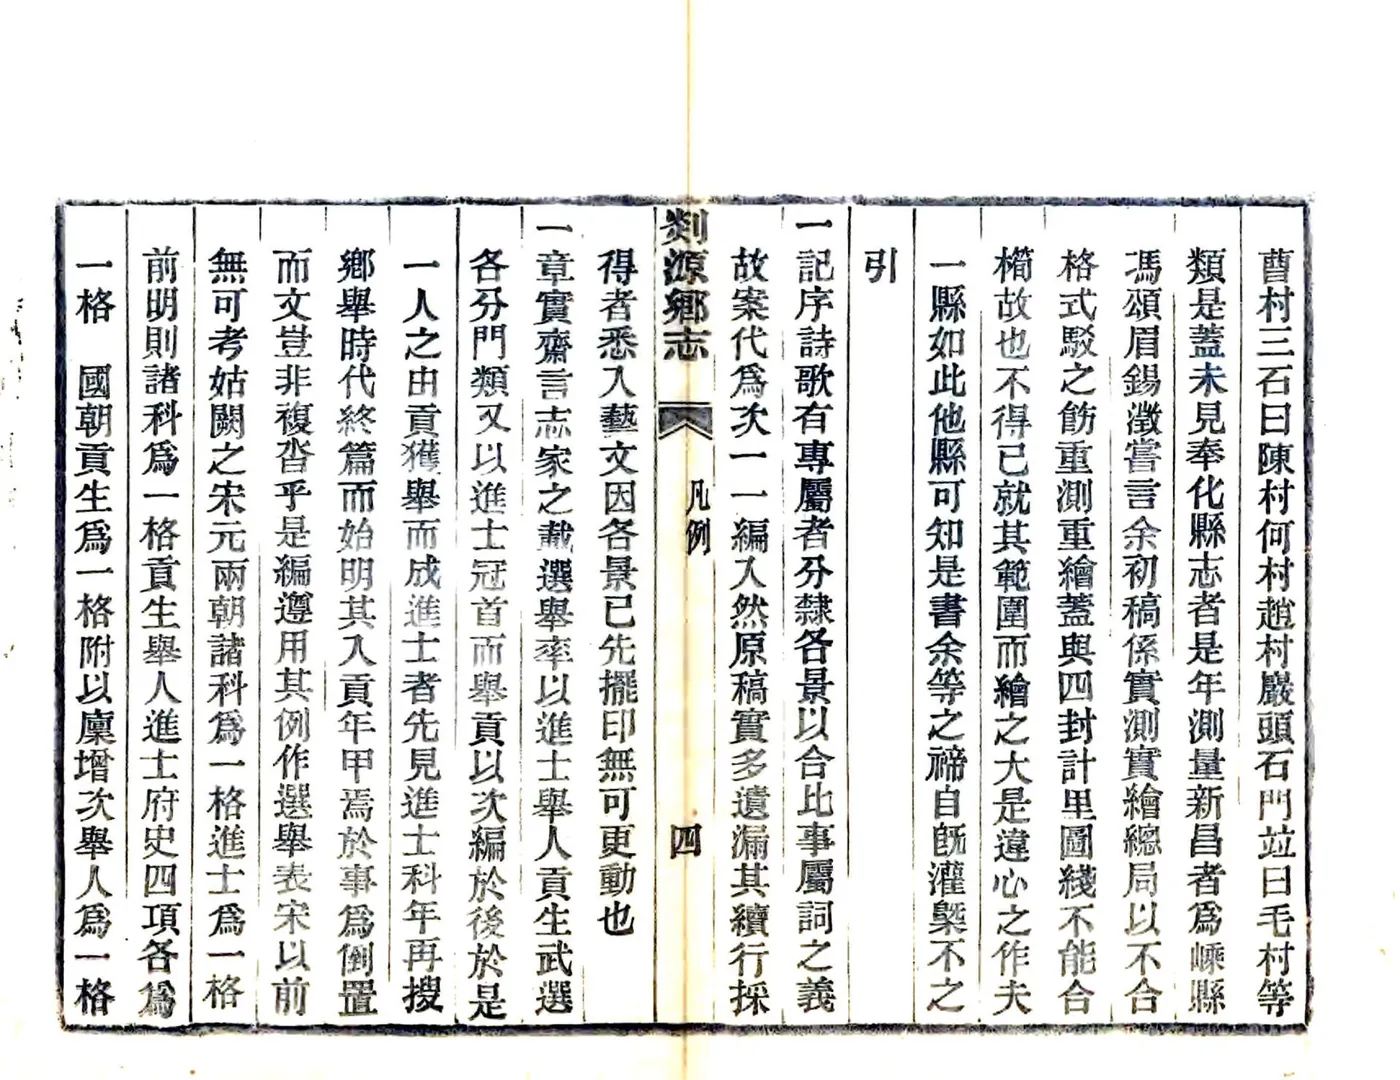 曹村三石曰陳村何村趙村巖頭石門竝曰毛村等
類是蓋未見奉化縣志者是年測量新昌者爲嵊縣
馮頌眉錫澂嘗言余初稿係實測實繪總局以不合
格式駁之飭重測重繪蓋與四封計里圖綫不能合
櫛故也不得已就其範圍而繪之大是違心之作夫
一縣如此他縣可知是書余等之禘自旣灌槩不之
引
一記序詩歌有專屬者分隸各景以合比事屬詞之義
故案代爲次一一編入然原稿實多遺漏其續行採
剡源鄉志
凡例
四
得者悉入藝文因各景已先擺印無可更動也
一章實齋言志家之載選舉率以進士舉人貢生武選
各分門類又以進士冠首而舉貢以次編於後於是
一人之由貢獲舉而成進士者先見進士科年再搜
鄉舉時代終篇而始明其入貢年甲焉於事爲倒置
而文豈非複沓乎是編遵用其例作選舉表宋以前
無可考姑闕之宋元兩朝諸科爲一格進士爲一格
前明則諸科爲一格貢生舉人進士府史四項各爲
一格　國朝貢生爲一格附以廩增次舉人爲一格